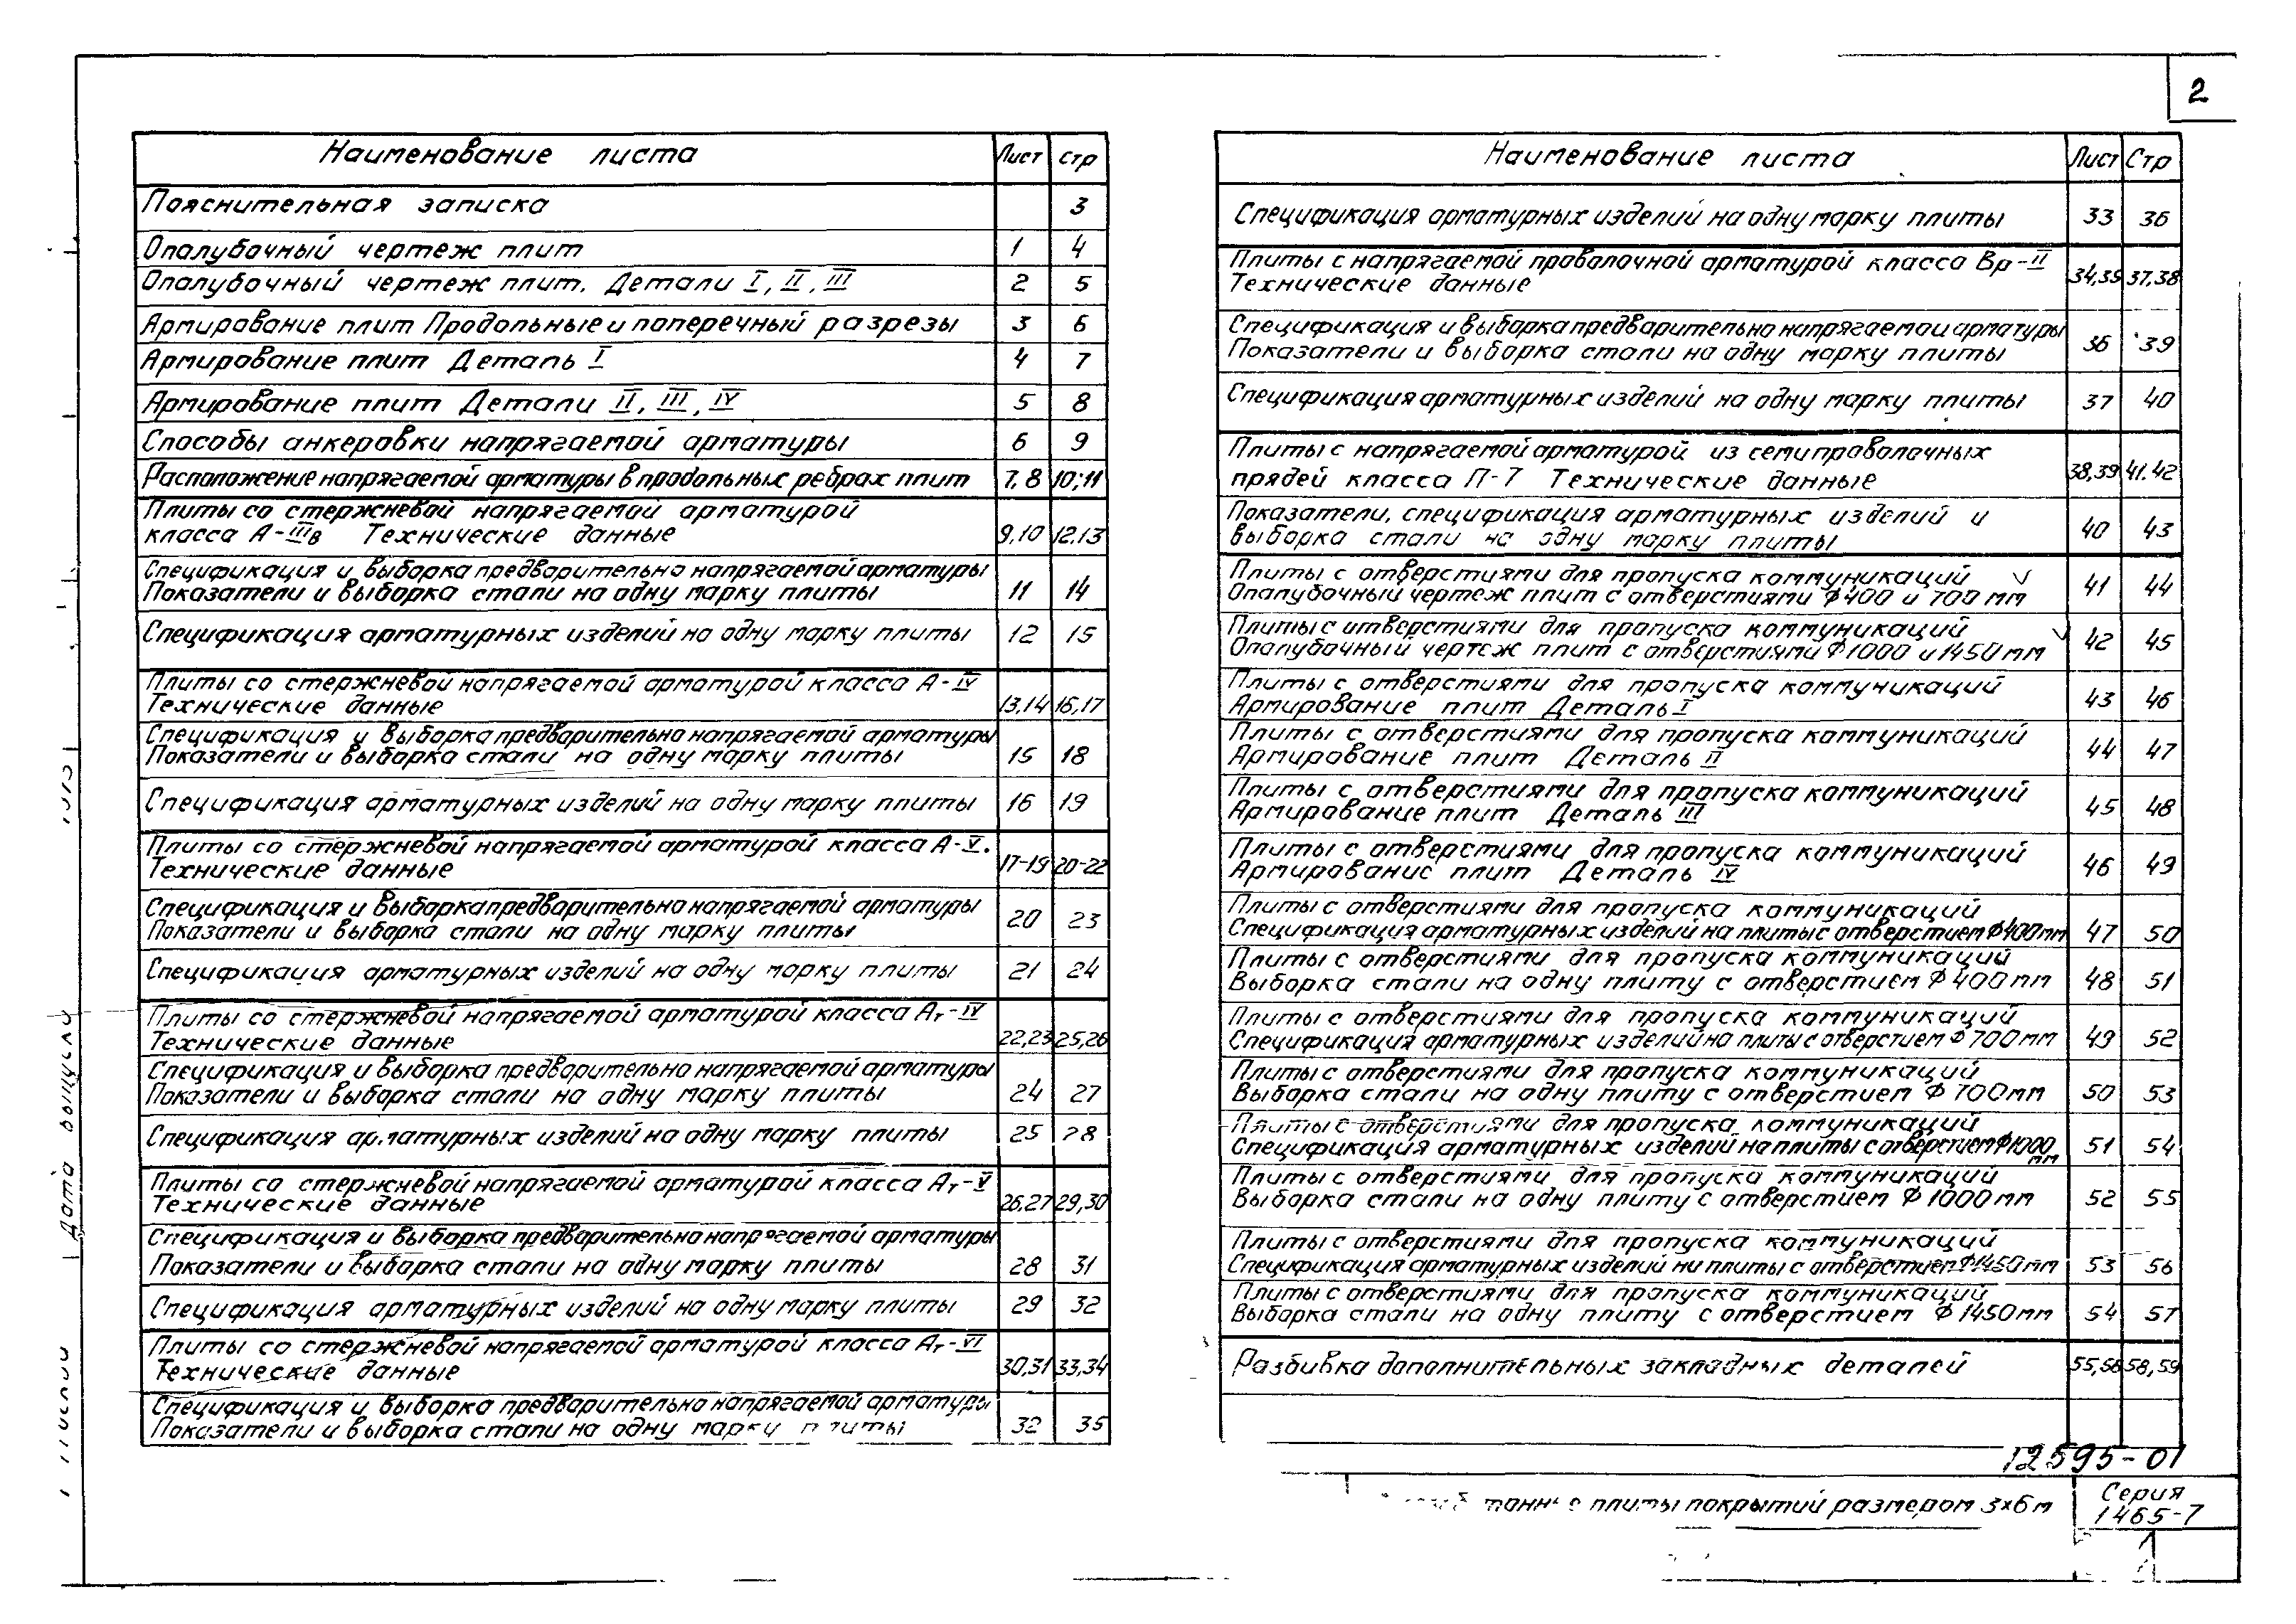 2
Наименование листа Лист Стр
Пояснительная записка 3
Опалубочный чертеж плит 1 4
Опалубочный чертеж плит. Детали I, II, III 2 5
Армирование плит Продольные и поперечный разрезы 3 6
Армирование плит Деталь I 4 7
Армирование плит Детали II, III, IV 5 8
Способы анкеровки напрягаемой арматуры 6 9
Расположение напрягаемой арматуры в продольных ребрах плит 7, 8 10; 11
Плиты со стержневой напрягаемой арматурой
класса А-IIIв Технические данные 9,10 12.13
Спецификация и выборка предварительно напрягаемой арматуры
Показатели и выборка стали на одну марку плиты 11 14
Спецификация арматурных изделий на одну марку плиты 12 15
Плиты со стержневой напрягаемой арматурой класса А-IV
Технические данные 13,14 16,17
Спецификация и выборка предварительно напрягаемой арматуры
Показатели и выборка стали на одну марку плиты 15 18
Спецификация арматурных изделий на одну марку плиты 16 19
Плиты со стержневой напрягаемой арматурой класса А-V.
Технические данные 17-19 20-22
Спецификация и выборка предварительно напрягаемой арматуры
Показатели и выборка стали на одну марку плиты 20 23
Спецификация арматурных изделий на одну марку плиты 21 24
Плиты со стержневой напрягаемой арматурой класса Ат-IV
Технические данные 22,23 25,26
Спецификация и выборка предварительно напрягаемой арматуры
Показатели и выборка стали на одну марку плиты 24 27
Спецификация арматурных изделий на одну марку плиты 25 28
Плиты со стержневой напрягаемой арматурой класса Ат-V
Технические данные 26,27 29,30
Спецификация и выборка предварительно напрягаемой арматуры
Показатели и выборка стали на одну марку плиты 28 31
Спецификация арматурных изделий на одну марку плиты 29 32
Плиты со стержневой напрягаемой арматурой класса Ат-VI
Технические данные 30,31 33,34
Спецификация и выборка предварительно напрягаемой арматуры
Показатели и выборка стали на одну марку плиты 32 35
Наименование листа Лист Стр
Спецификация арматурных изделий на одну марку плиты 33 36
Плиты с напрягаемой проволочной арматурой класса Вр-II
Технические данные 34,35 37,38
Спецификация и выборка предварительно напрягаемой арматуры
Показатели и выборка стали на одну марку плиты 36 39
Спецификация арматурных изделий на одну марку плиты 37 40
Плиты с напрягаемой арматурой из семипроволочных
прядей класса П-7 Технические данные 38,39 41.42
Показатели, спецификация арматурных изделий и
выборка стали на одну марку плиты 40 43
Плиты с отверстиями для пропуска коммуникаций
Опалубочный чертеж плит с отверстиями Ф400 и 700 мм 41 44
Плиты с отверстиями для пропуска коммуникаций
Опалубочный чертеж плит с отверстиями Ф1000 и 1450 мм 42 45
Плиты с отверстиями для пропуска коммуникаций
Армирование плит Деталь I 43 46
Плиты с отверстиями для пропуска коммуникаций
Армирование плит Деталь II 44 47
Плиты с отверстиями для пропуска коммуникаций
Армирование плит Деталь III 45 48
Плиты с отверстиями для пропуска коммуникаций
Армирование плит Деталь IV 46 49
Плиты с отверстиями для пропуска коммуникаций
Спецификация арматурных изделий на плиты с отверстием Ф400мм 47 50
Плиты с отверстиями для пропуска коммуникаций
Выборка стали на одну плиту с отверстием Ф400мм 48 51
Плиты с отверстиями для пропуска коммуникаций
Спецификация арматурных изделий на плиты с отверстием Ф 700мм 49 52
Плиты с отверстиями для пропуска коммуникаций
Выборка стали на одну плиту с отверстием Ф 700мм 50 53
Плиты с отверстиями для пропуска коммуникаций
Спецификация арматурных изделий на плиты с отверстием Ф1000 мм 51 54
Плиты с отверстиями для пропуска коммуникаций
Выборка стали на одну плиту с отверстием Ф 1000 мм 52 55
Плиты с отверстиями для пропуска коммуникаций
Спецификация арматурных изделий на плиты с отверстием Ф1450мм 53 56
Плиты с отверстиями для пропуска коммуникаций
Выборка стали на одну плиту с отверстием Ф 1450мм 54 57
Разбивка дополнительных закладных деталей 55,56 58,59
12595-01
плиты покрытий размером 3×6 м
Серия
1465-7
Дата выпуска